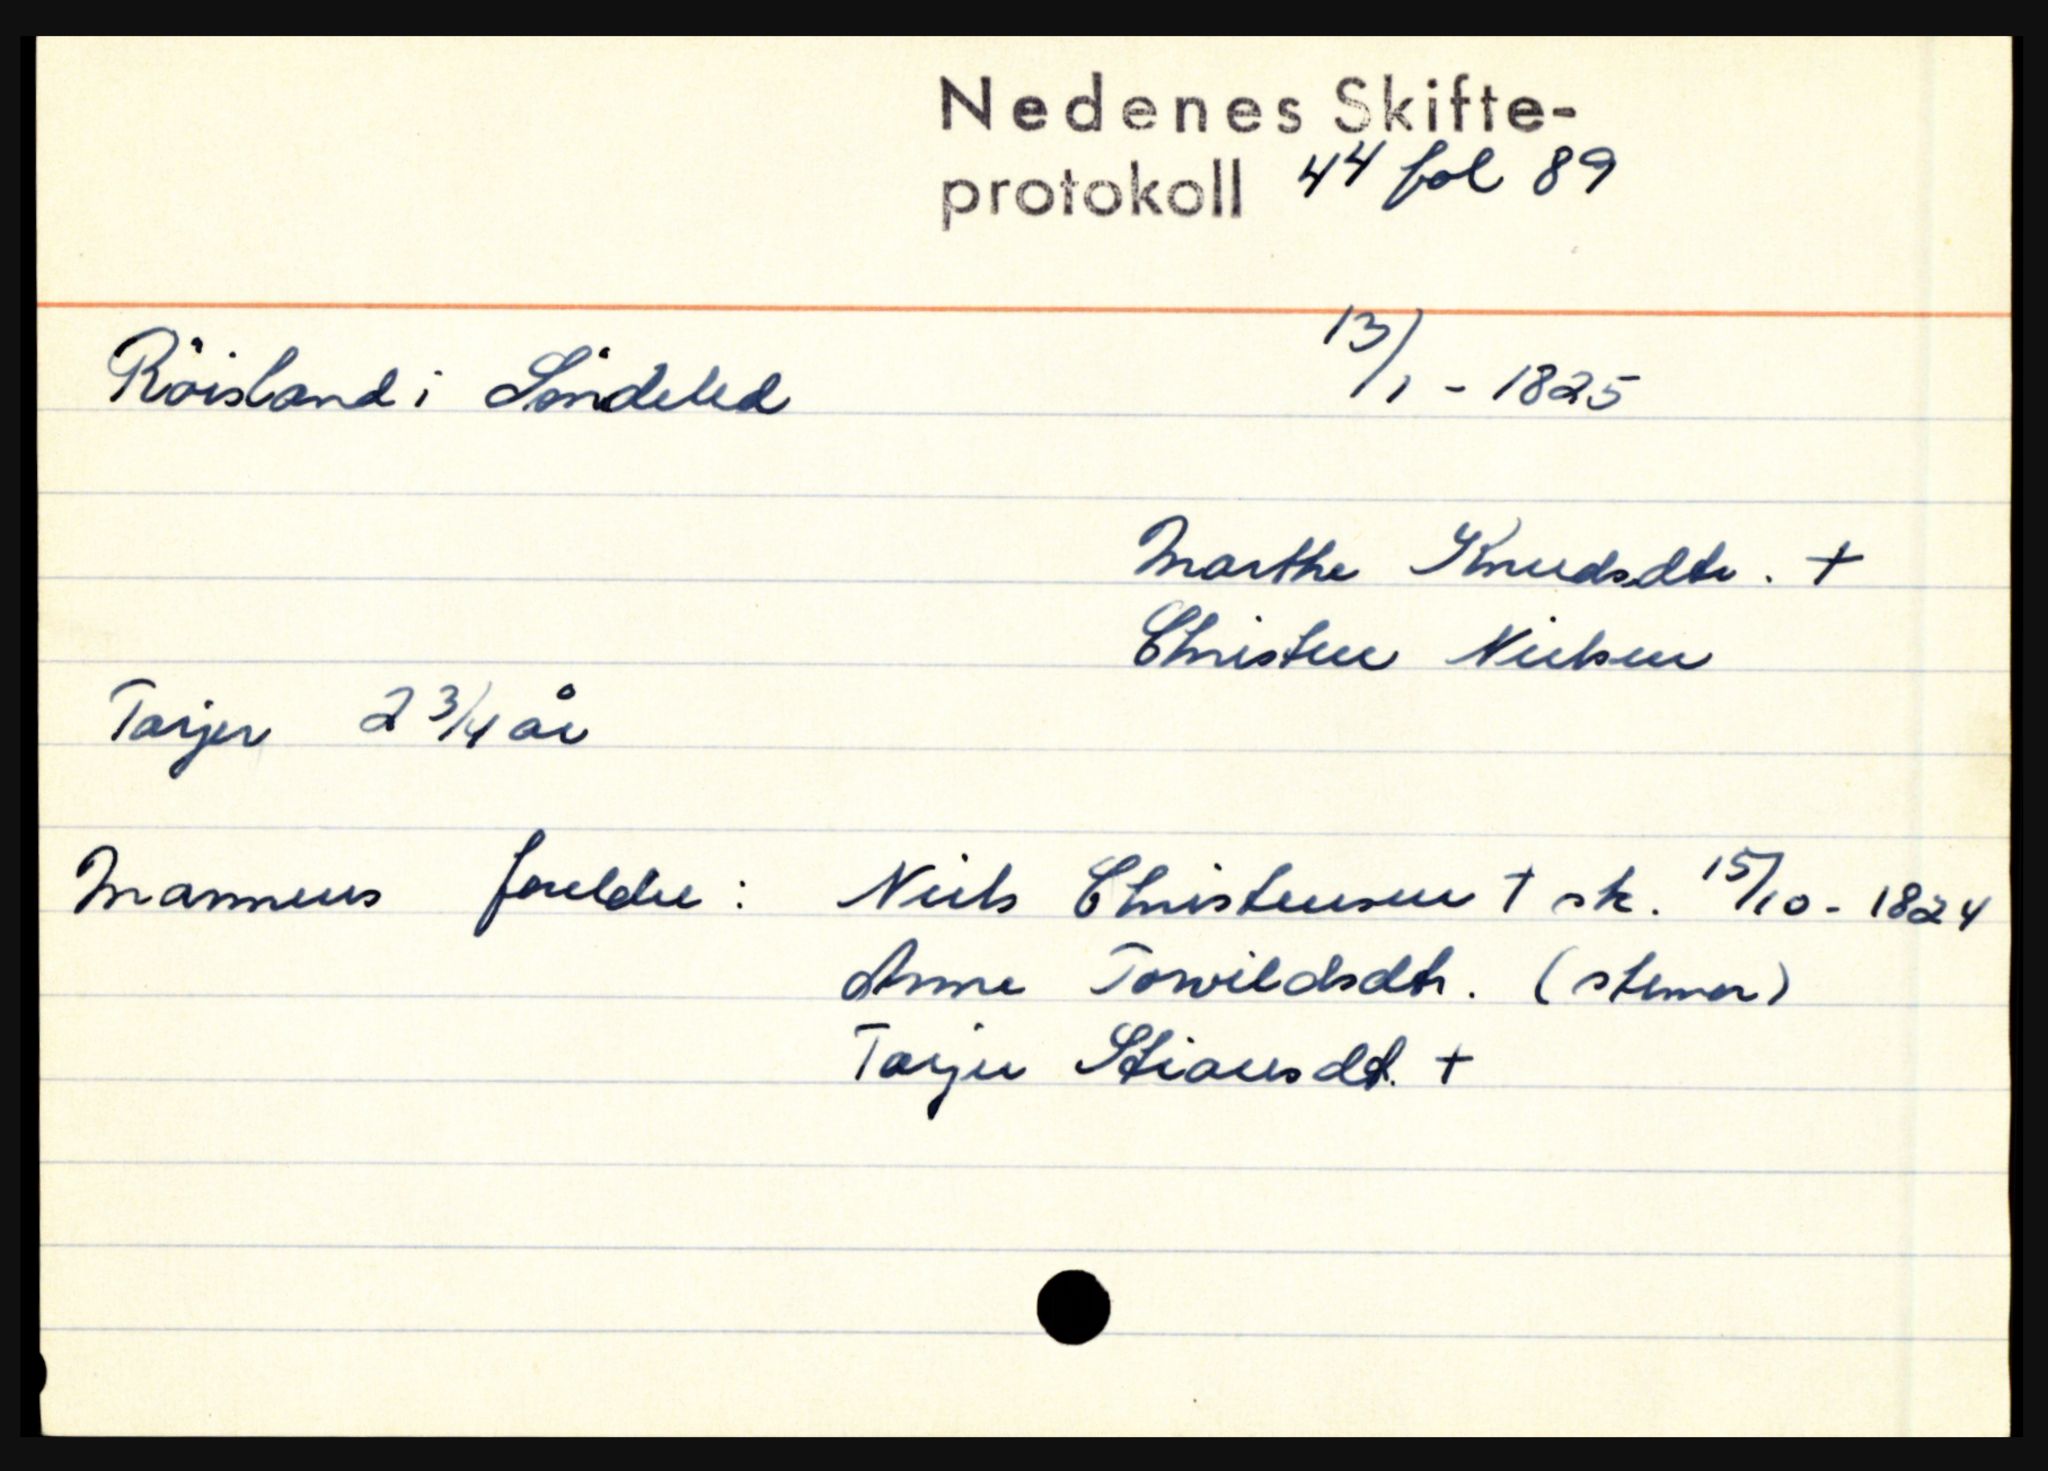 Nedenes Skifte-
protokoll 44 fol 89
Röisland i Söndeled 13/1 - 1825
Marthe Knudsdtr. +
Christen Nielsen
Tarjer 2 3/4 år
Mannens foreldre : Niels Christensen + sk. 15/10 - 1824
Anne Torvildsdtr. (stemor)
Tarjer Stiansdt. +